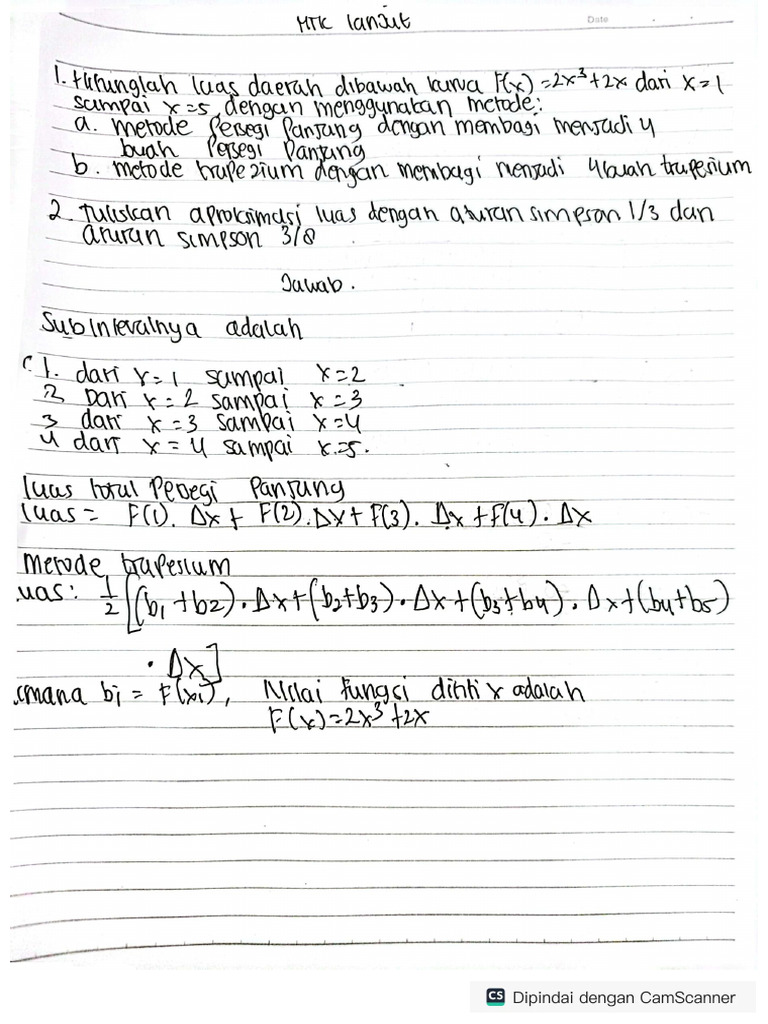 MTK lanjut
Date
1. Hitunglah luas daerah dibawah kurva F(x) = 2x³ + 2x dari x = 1
sampai x = 5 dengan menggunakan metode:
a. metode Persegi Panjang dengan membagi menjadi 4
buah Persegi Panjang
b. metode trapezium dengan membagi menjadi 4 buah trapesium
2. Tuliskan aproksimasi luas dengan aturan simpson 1/3 dan
aturan simpson 3/8
Jawab.
Subintevalnya adalah
1. dari x = 1 sampai x = 2
2 Dari x = 2 sampai x = 3
3 dari x = 3 sampai x = 4
4 dari x = 4 sampai x = 5.
luas total Persegi Panjang
luas = F(1). Δx + F(2). Δx + F(3). Δx + F(4). Δx
Metode trapesium
uas: 1/2 [(b₁ + b2) . Δx + (b₂ + b₃) . Δx + (b₃ + b4) . Δx + (b4 + b5)
. Δx]
imana bi = F(xi), Nilai fungsi dititi x adalah
F(x) = 2x³ + 2x
CS Dipindai dengan CamScanner